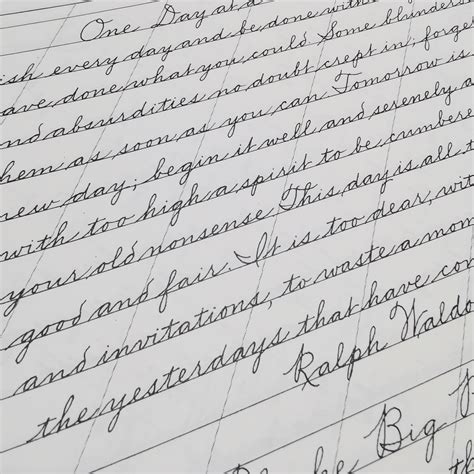 One Day at a
ish every day and be done with
ave done, what you could Some blunders
nd absurdities no doubt crept in, forge
hem as soon as you can Tomorrow is
new day; begin it well and serenely a
with too high a spirit to be cumbere
your old nonsense. This day is all t
good and fair. It is too dear, wit
and invitations, to waste a mom
the yesterdays that have con
Ralph Waldo
Big